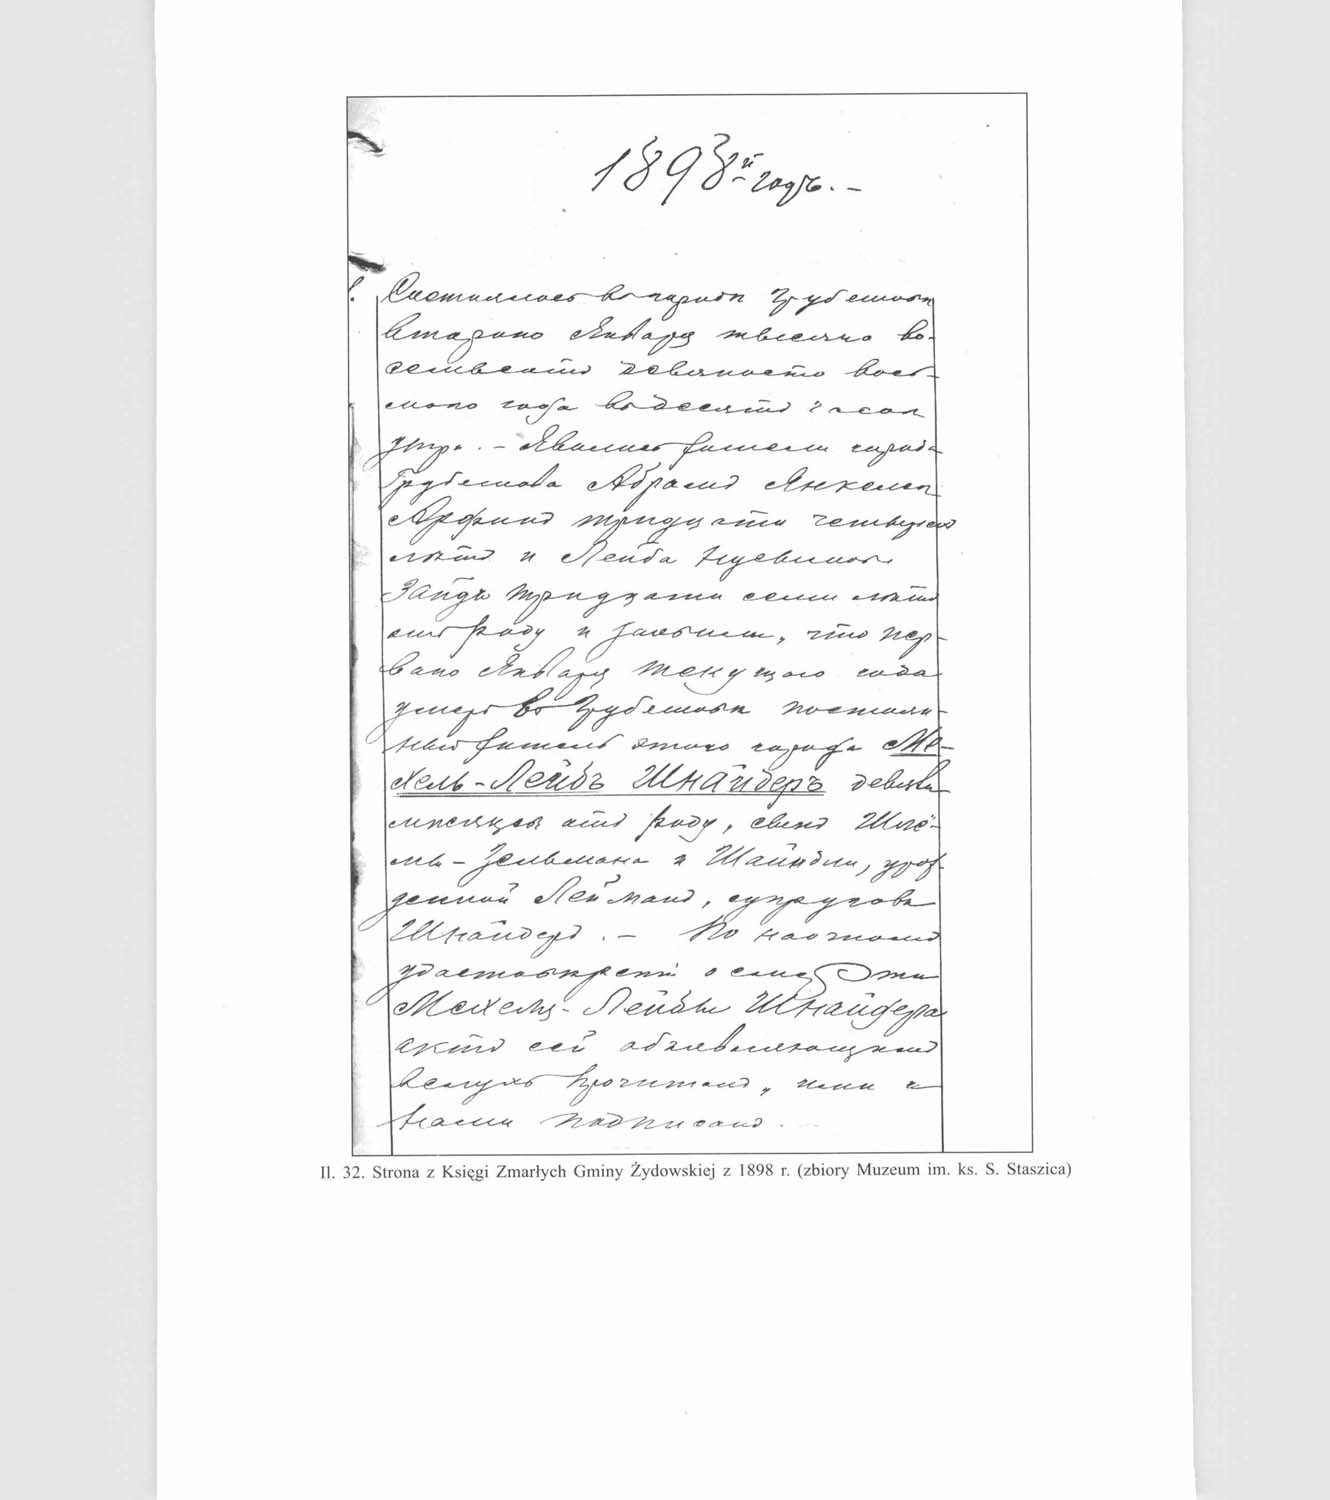 1898й годъ. –
1. Состоялось въ городѣ Грубешовѣ
втораго Января тысяча во-
семьсотъ девяносто вось-
маго года въ десять часов
утра. – Явились жители города
Грубешова Абрамъ Янкель
тридцати четырехъ
лѣтъ и Лейба
Зайдъ тридцати семи лѣтъ
отъ роду и заявили, что пер-
ваго Января текущаго года
умеръ въ Грубешовѣ постоян-
ный житель этого города Ме-
хель-Лейбъ Шнайдеръ девяти
мѣсяцевъ отъ роду, сынъ Шлё-
мы-Зельмана и Шайндли, урож-
денной Лейманъ, супруговъ
Шнайдеръ. – По наочномъ
удостовѣреніи о смерти
Мехеля-Лейбы Шнайдера
актъ сей объявляющимъ
вслухъ прочитанъ, ими и
нами подписанъ.
Il. 32. Strona z Księgi Zmarłych Gminy Żydowskiej z 1898 r. (zbiory Muzeum im. ks. S. Staszica)